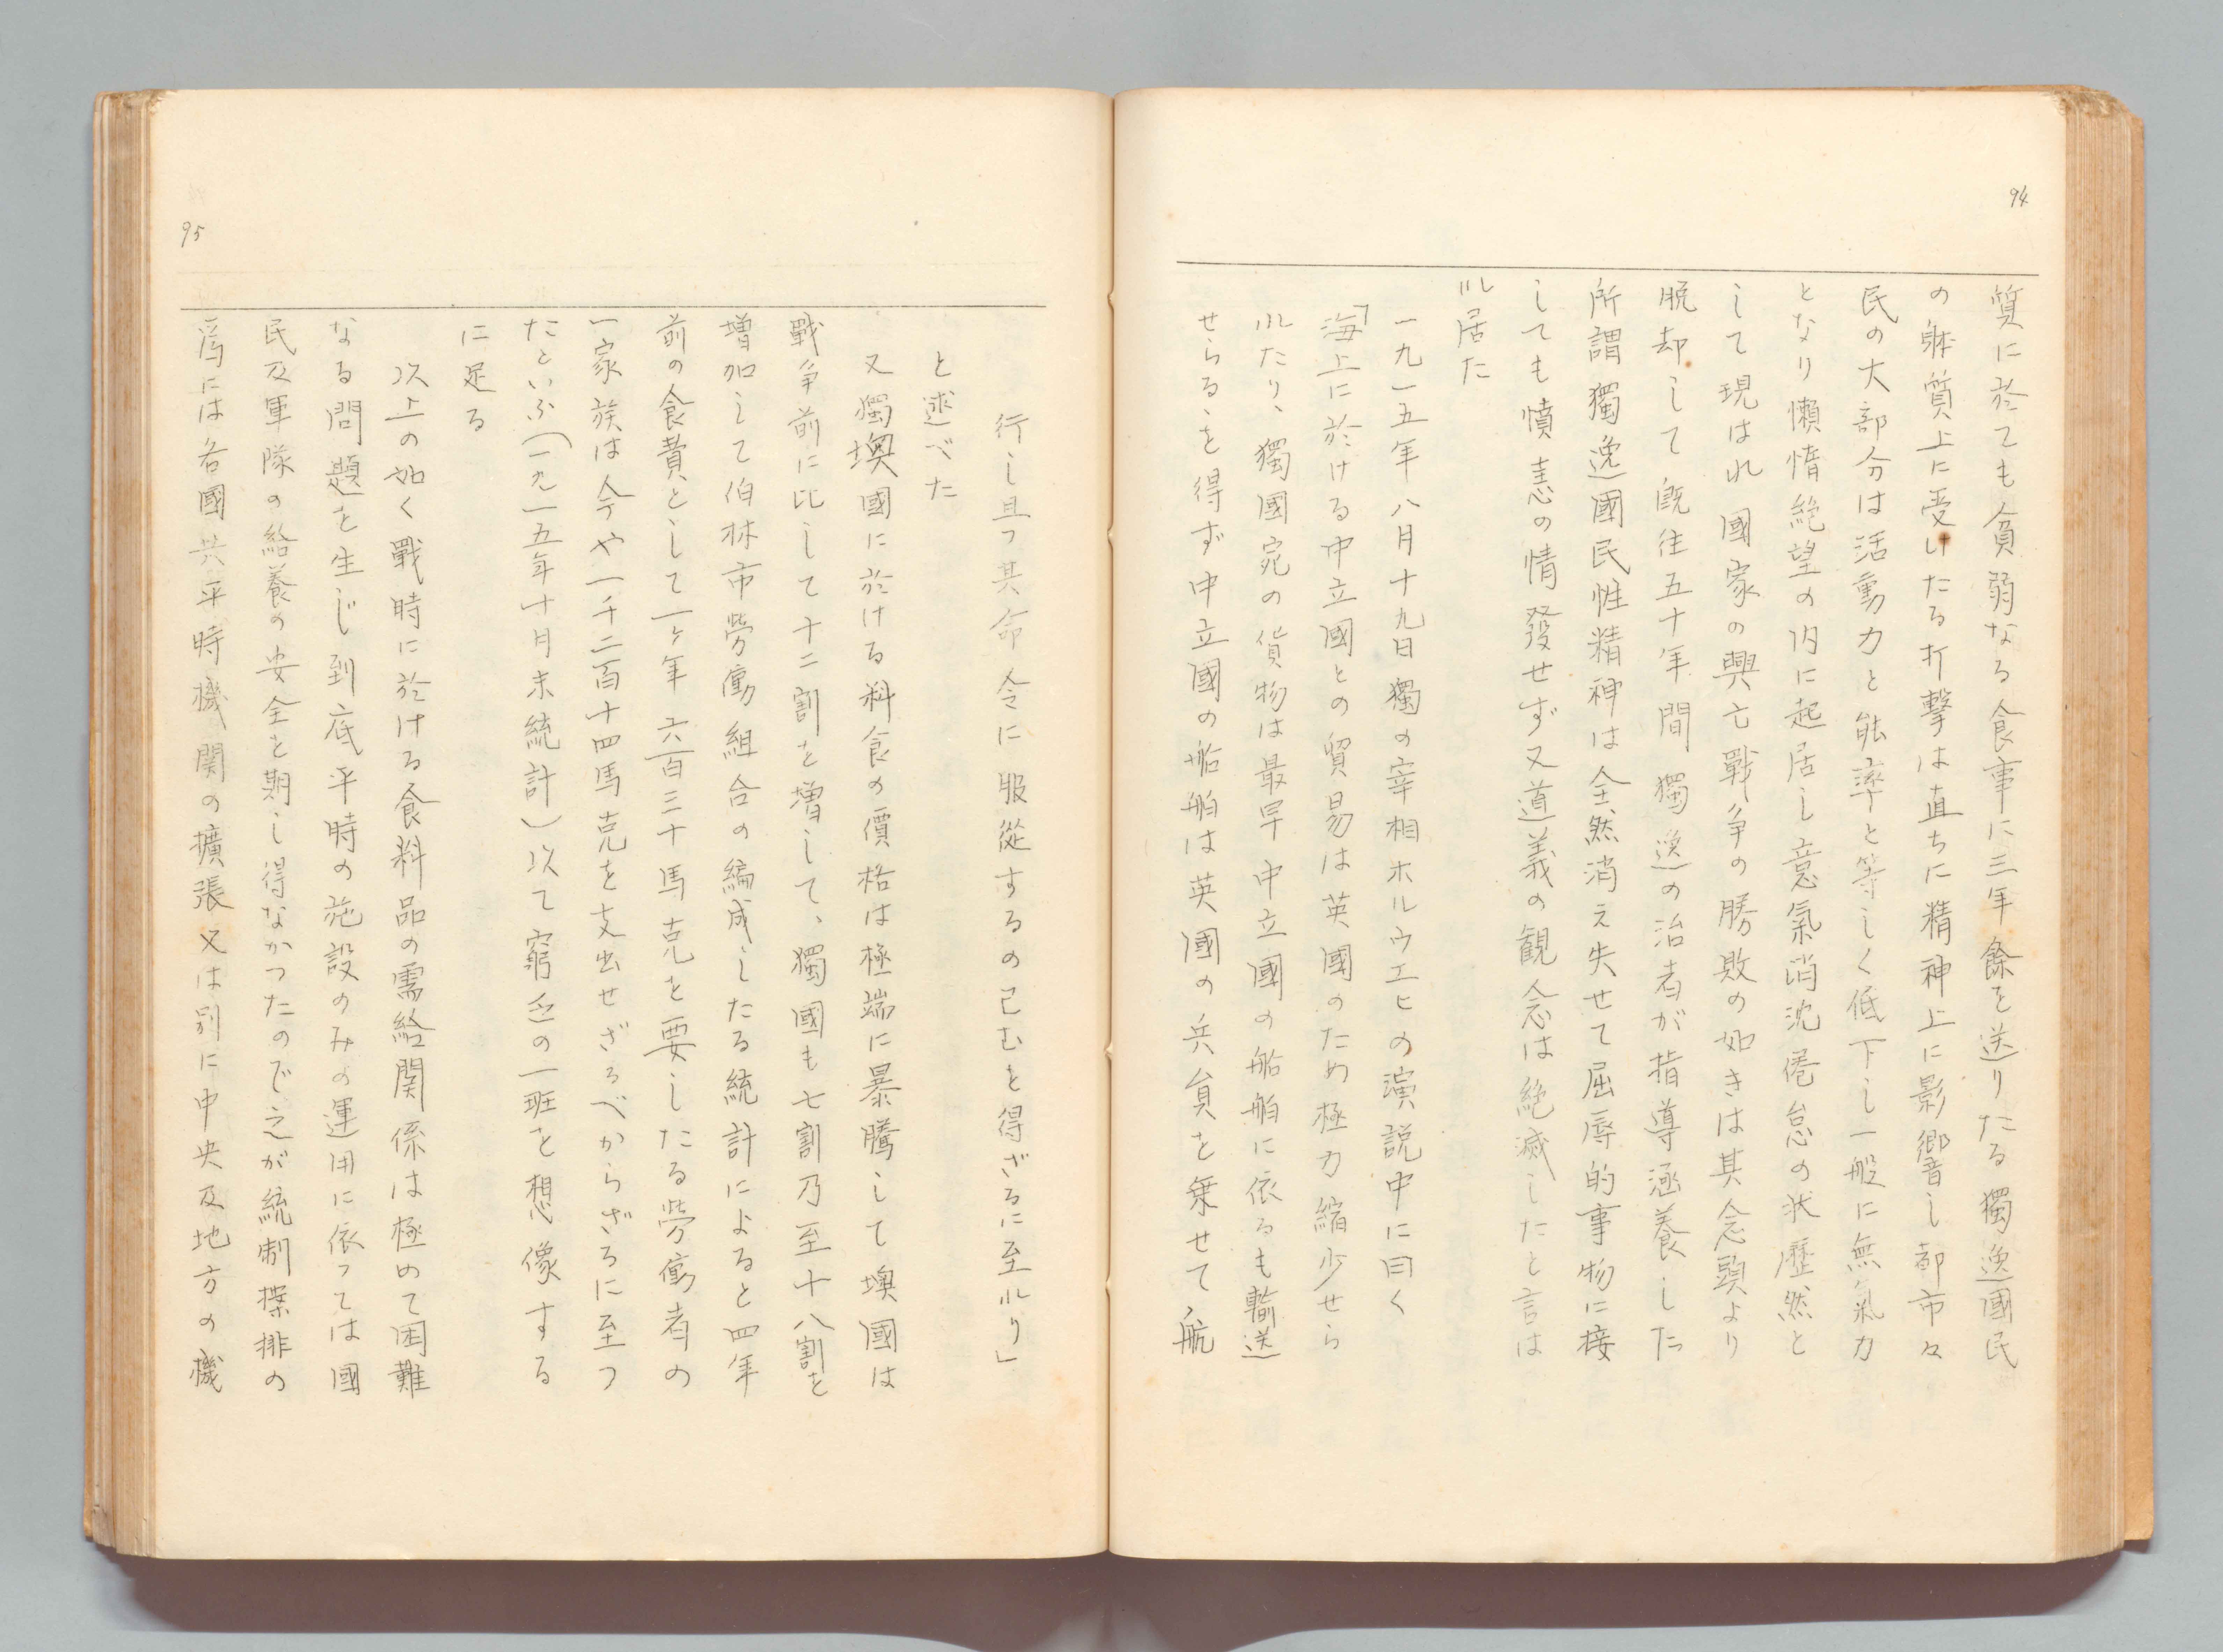 94
質に於ても貧弱なる食事に三年餘を送りたる獨逸國民
の躰質上に受けたる打撃は直ちに精神上に影響し都市々
民の大部分は活動力と能率と等しく低下し一般に無氣力
となり懶惰絶望の内に起居し意氣消沈倦怠の状歴然と
して現はれ國家の興亡戰争の勝敗の如きは其念頭より
脱却して既往五十年間獨逸の治者が指導涵養した
所謂獨逸國民性精神は全然消え失せて屈辱的事物に接
しても憤恚の情發せず又道義の観念は絶滅したと言は
れ居た
一九一五年八月十九日獨の宰相ホルウエヒの演説中に曰く
「海上に於ける中立國との貿易は英國のため極力縮少せら
れたり、獨國宛の貨物は最早中立國の船舶に依るも輸送
せらるを得ず中立國の船舶は英國の兵員を乗せて航
95
行し且つ其命令に服從するの已むを得ざるに至れり」
と述べた
又獨墺國に於ける料食の價格は極端に暴騰して墺國は
戰争前に比して十二割を増して、獨國も七割乃至十八割を
増加して伯林市勞働組合の編成したる統計によると四年
前の食費として一ヶ年六百三十馬克を要したる勞働者の
一家族は今や一千二百十四馬克を支出せざるべからざるに至つ
たといふ(一九一五年十月末統計)以て窮乏の一班を想像する
に足る
以上の如く戰時に於ける食料品の需給関係は極めて困難
なる問題を生じ到底平時の施設のみの運用に依つては國
民及軍隊の給養の安全を期し得なかつたので之が統制按排の
爲には各國共平時機関の擴張又は別に中央及地方の機